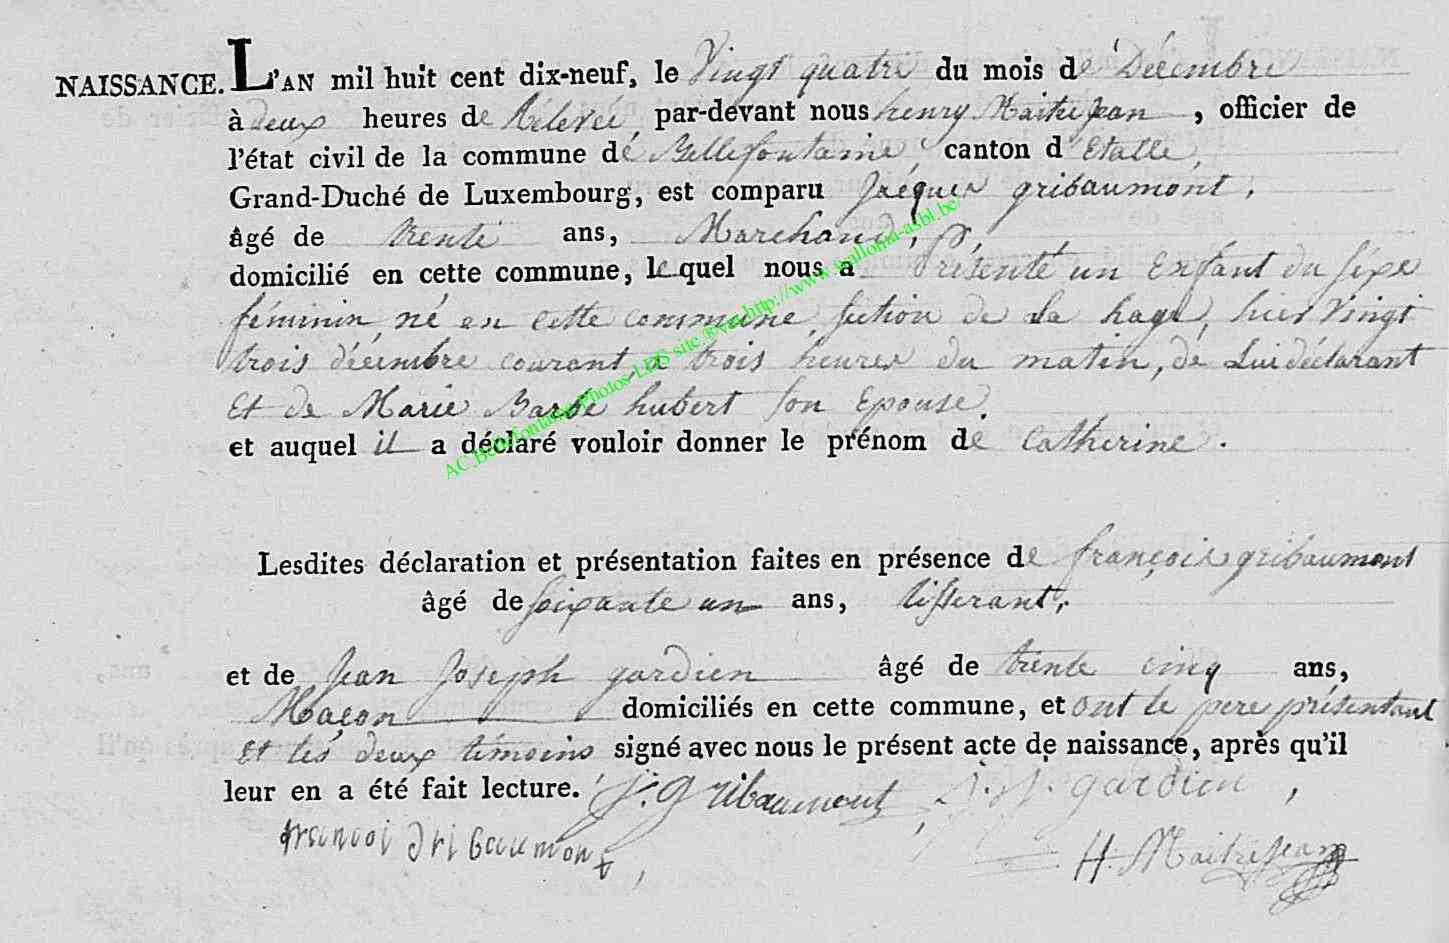 NAISSANCE. L'AN mil huit cent dix-neuf, le Vingt quatre du mois de Décembre
à deux heures de Rélevée, par-devant nous henry Maitrejean, officier de
l'état civil de la commune de Bellefontaine, canton d'Etalle,
Grand-Duché de Luxembourg, est comparu Jacques gribaumont,
âgé de trente ans, Marchand,
domicilié en cette commune, lequel nous a Présenté un Enfant du sexe
féminin, né en cette commune, section de La hage, hier Vingt
trois décembre courant, à trois heures du matin, de Lui déclarant
Et de Marie Barbe hubert son Epouse.
et auquel il a déclaré vouloir donner le prénom de Catherine.
AC Bellefontaine-Photos-LDS site @vec http://www.wallonia-asbl.be/
Lesdites déclaration et présentation faites en présence de françois gribaumont
âgé de soixante un ans, tisserant,
et de Jean Joseph gardien âgé de trente cinq ans,
Maçon domiciliés en cette commune, et ont le pere présentant
Et les deux témoins signé avec nous le présent acte de naissance, après qu'il
leur en a été fait lecture. J. Gribaumont, J. J. gardien,
francoi Gribaumont,
H. Maitrejean